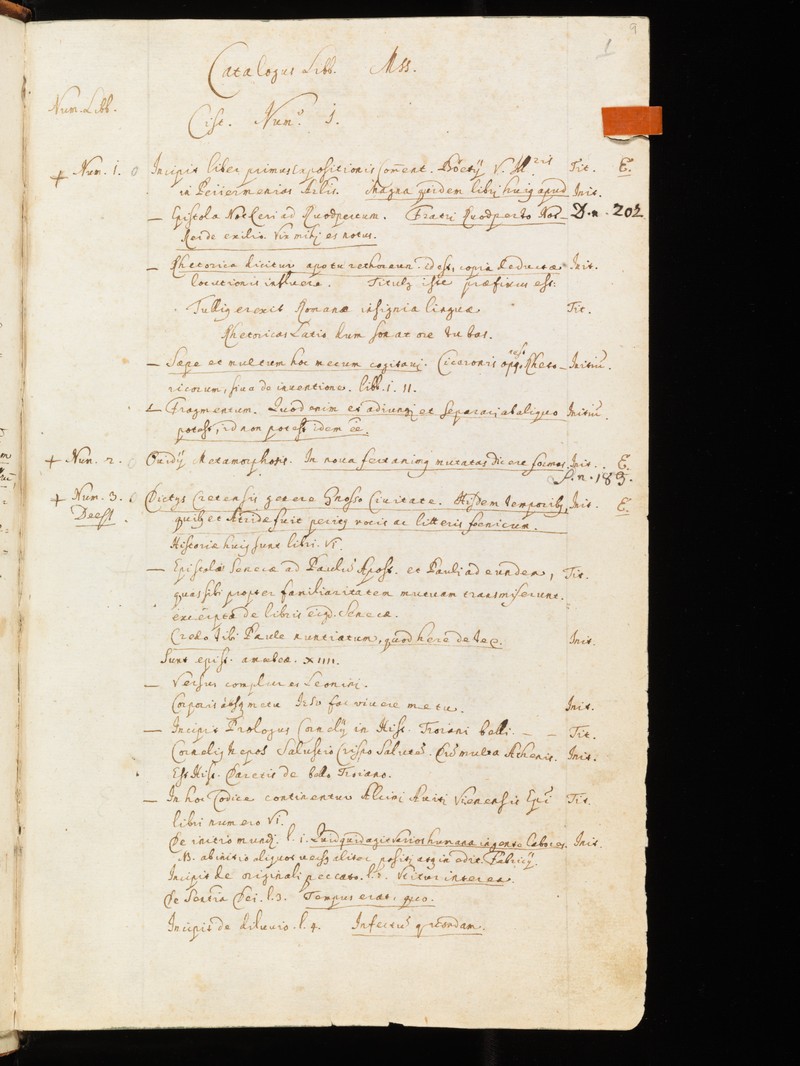 9
1
Catalogus Libb. Mss.
Num. Libb.
Cist. Num.º 1.
+ Num. 1. 0 Incipit liber primus expositionis Com̄ent. Boëtij V. Tit. E.
in Periermenias Arlis. Magna quidem libri huiꝰ apud Init.
— Epistola Notkeri ad Ruodpertum. Fratri Ruodperto Not- D.n. 202
Rei de exilio. Vir mihi es notus.
— Rhetorica dicitur apo tu rethoreun. id est, copia deductae Init.
locutionis influere. Titulꝰ iste praefixus est:
Tulliꝰ erexit Romanae insignia linguae Tit.
Rhetoricas Latio dum sonat ore tubas.
— Saepe et multum hoc mecum cogitavi. Ciceronis opꝰ Rheto- Initiū.
ricorum, siva de inventione. libb. I. II.
— Fragmentum. Quod enim et adiungi et separari ab aliquo Initiū
potest, id non potest idem eē.
+ Num. 2. 0 Ovidij Metamorphosis. In nova fert animꝰ mutatas dicere formas Init. E.
S.n. 183.
+ Num. 3. 0 Dictys Cretensis genere Gnoso Civitate. Hisdem temporibꝰ, Init. E.
Deest. quibꝰ et Atridae fuit peritꝰ vocis ac litteris foenicum.
Historiae huiꝰ sunt libri. VI.
— Epistolae Senecae ad Paulū Apost. et Pauli ad eundem, Tit.
quas sibi propter familiaritatem mutuam transmiserunt.
excerpta de libris eiꝰd. Senecae.
Credo tibi Paule nuntiatum, quod here de te &. Init.
Sunt epist. amoebeae. XIIII.
— Versus complures Leonini.
Corporis metu Init.
— Incipit Prologus Cornelij in Hist. Troiani belli. — — Tit.
Cornelis Nepos Salustio Crispo Salutē. Cū multa Athenis. Init.
Est Hist. Daretis de bello Troiano.
— In hoc Codice continentur Alcimi Aviti Viennensis Epi Tit.
libri numero VI.
De initio mundi. l. 1. Quidquid agit varios humana in gente labores. Init.
NB. ab initio aliquot versꝰ aliter positi atq in edit. Fabricij.
Incipit de originali peccato. l. 2. Utitur interea.
De Sentia Dei. l. 3. Tempus erat, quo.
Incipit de diluvio. l. 4. Infectū quondam.